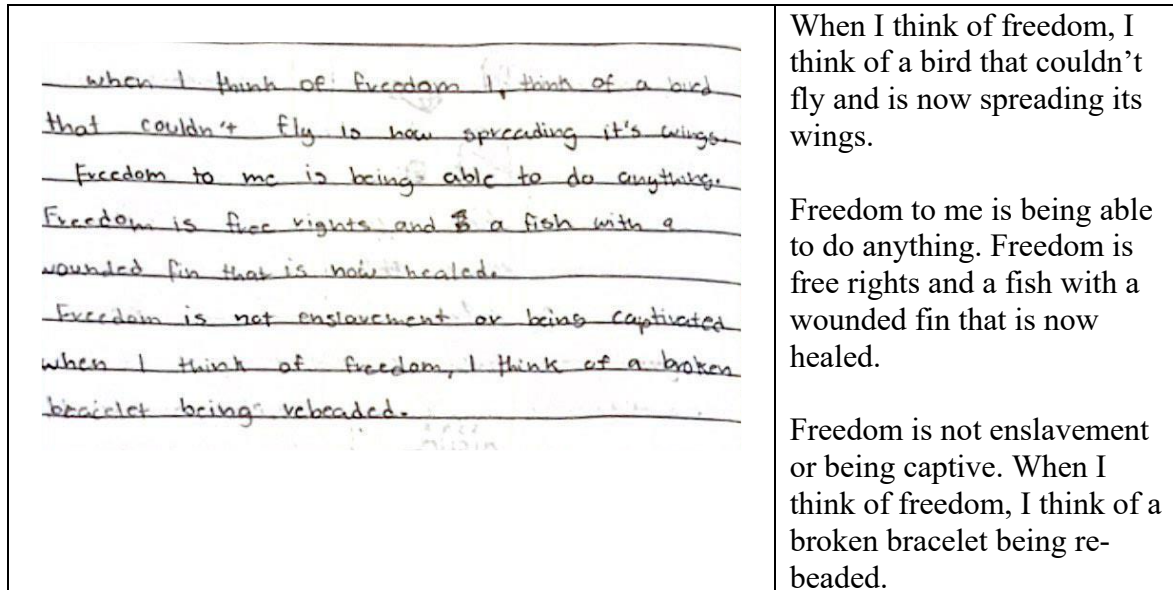 when I think of freedom I, think of a bird
that couldn't fly is now spreading it's wings.
Freedom to me is being able to do anything.
Freedom is free rights and a fish with a
wounded fin that is now healed.
Freedom is not enslavement or being captivated
when I think of freedom, I think of a broken
bracelet being rebeaded.
When I think of freedom, I
think of a bird that couldn’t
fly and is now spreading its
wings.
Freedom to me is being able
to do anything. Freedom is
free rights and a fish with a
wounded fin that is now
healed.
Freedom is not enslavement
or being captive. When I
think of freedom, I think of a
broken bracelet being re-
beaded.